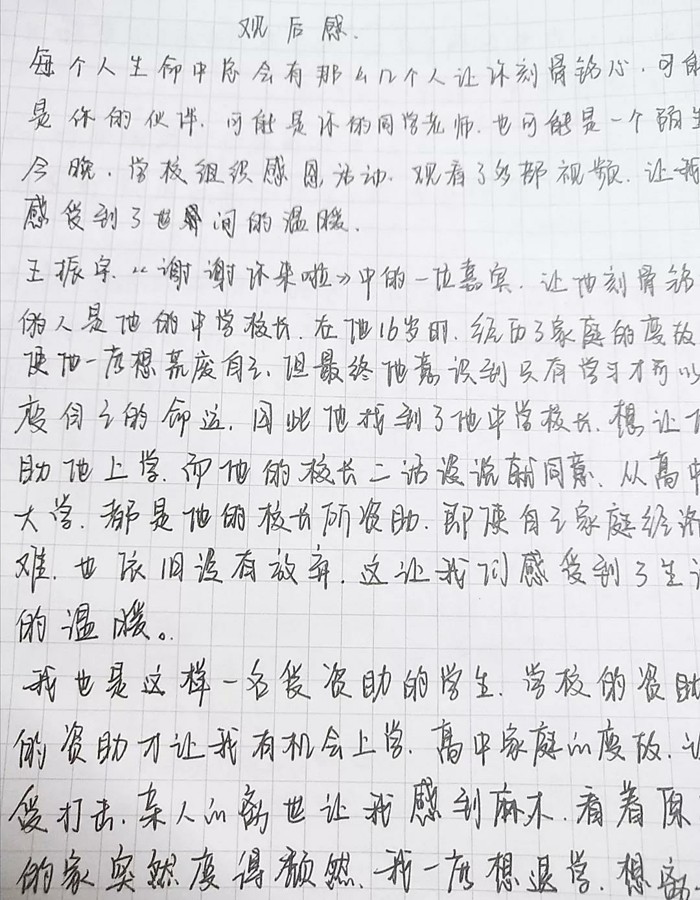 观后感.
每个人生命中总会有那么几个人让你刻骨铭心.可能
是你的伙伴.可能是你的同学老师.也可能是一个陌生
今晚.学校组织感恩活动.观看了外部视频.让我
感受到了世界间的温暖.
王振宗.《谢谢你来啦》中的一位嘉宾.让他刻骨铭
的人是他的中学校长.在他16岁时.经历了家庭的变故
使他一度想荒废自己.但最终他意识到只有学习才可以
变自己的命运.因此他找到了他中学校长.想让
助他上学.而他的校长二话没说就同意.从高中
大学.都是他的校长所资助.即使自己家庭经济
难.也依旧没有放弃.这让我们感受到了生活
的温暖。
我也是这样一名受资助的学生.学校的资助
的资助才让我有机会上学.高中家庭的变故.让
受打击.亲人的离世让我感到麻木.看着原
的家突然变得颓然.我一度想退学.想离